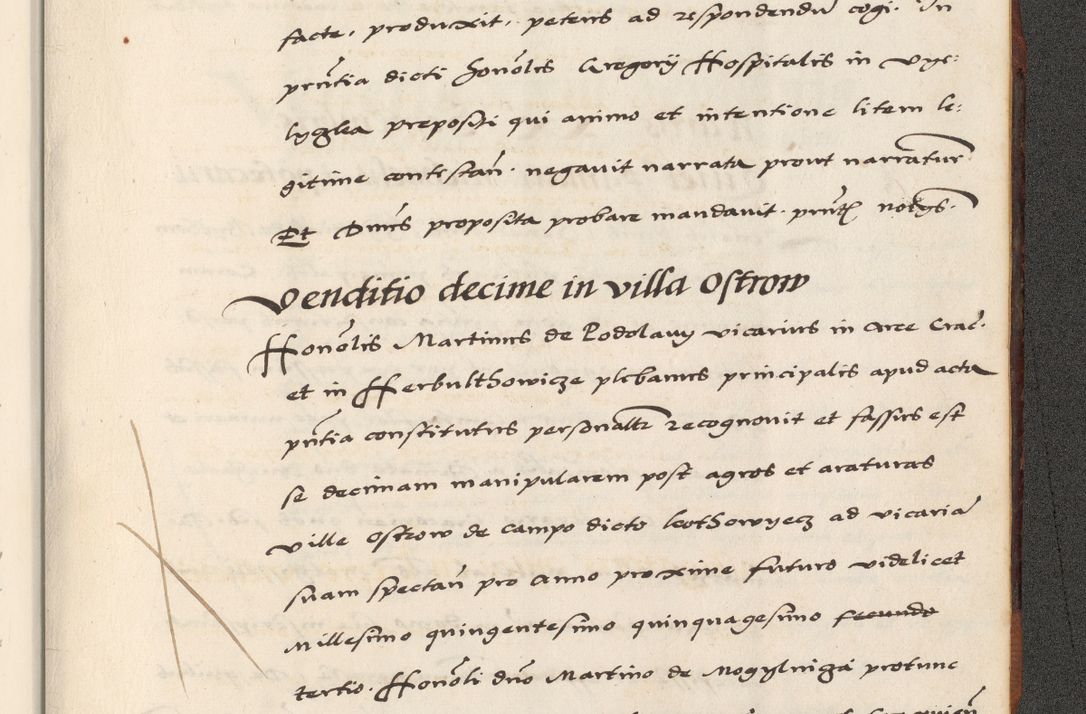 facte, produxit, petens ad respondendũ cogi. In
pñtia dicti honõlis Gregorij Hospitalis in Vye:
lyglca prepositi qui animo et intentione litem le:
gitime contestañ. negavit narrata prout narrantur
Et Dnus proposita probare mandavit. pñt
Venditio decime in villa Ostrow
Honõlis Martinus de Podolavy vicarius in Arce Crac̃.
et in Herbulthowicze plebanus principalis apud acta
pñtia constitutus personaltr recognovit et fassus est
se decimam manipularem post agros et araturas
ville Ostrow de campo dicto Lcothowyecz ad vicariã
suam spectañ pro Anno proxime futuro videlicet
Millesimo quingentesimo quinquagesimo secundo
tertio. Honõli dño Martino de Mogylnicza protunc